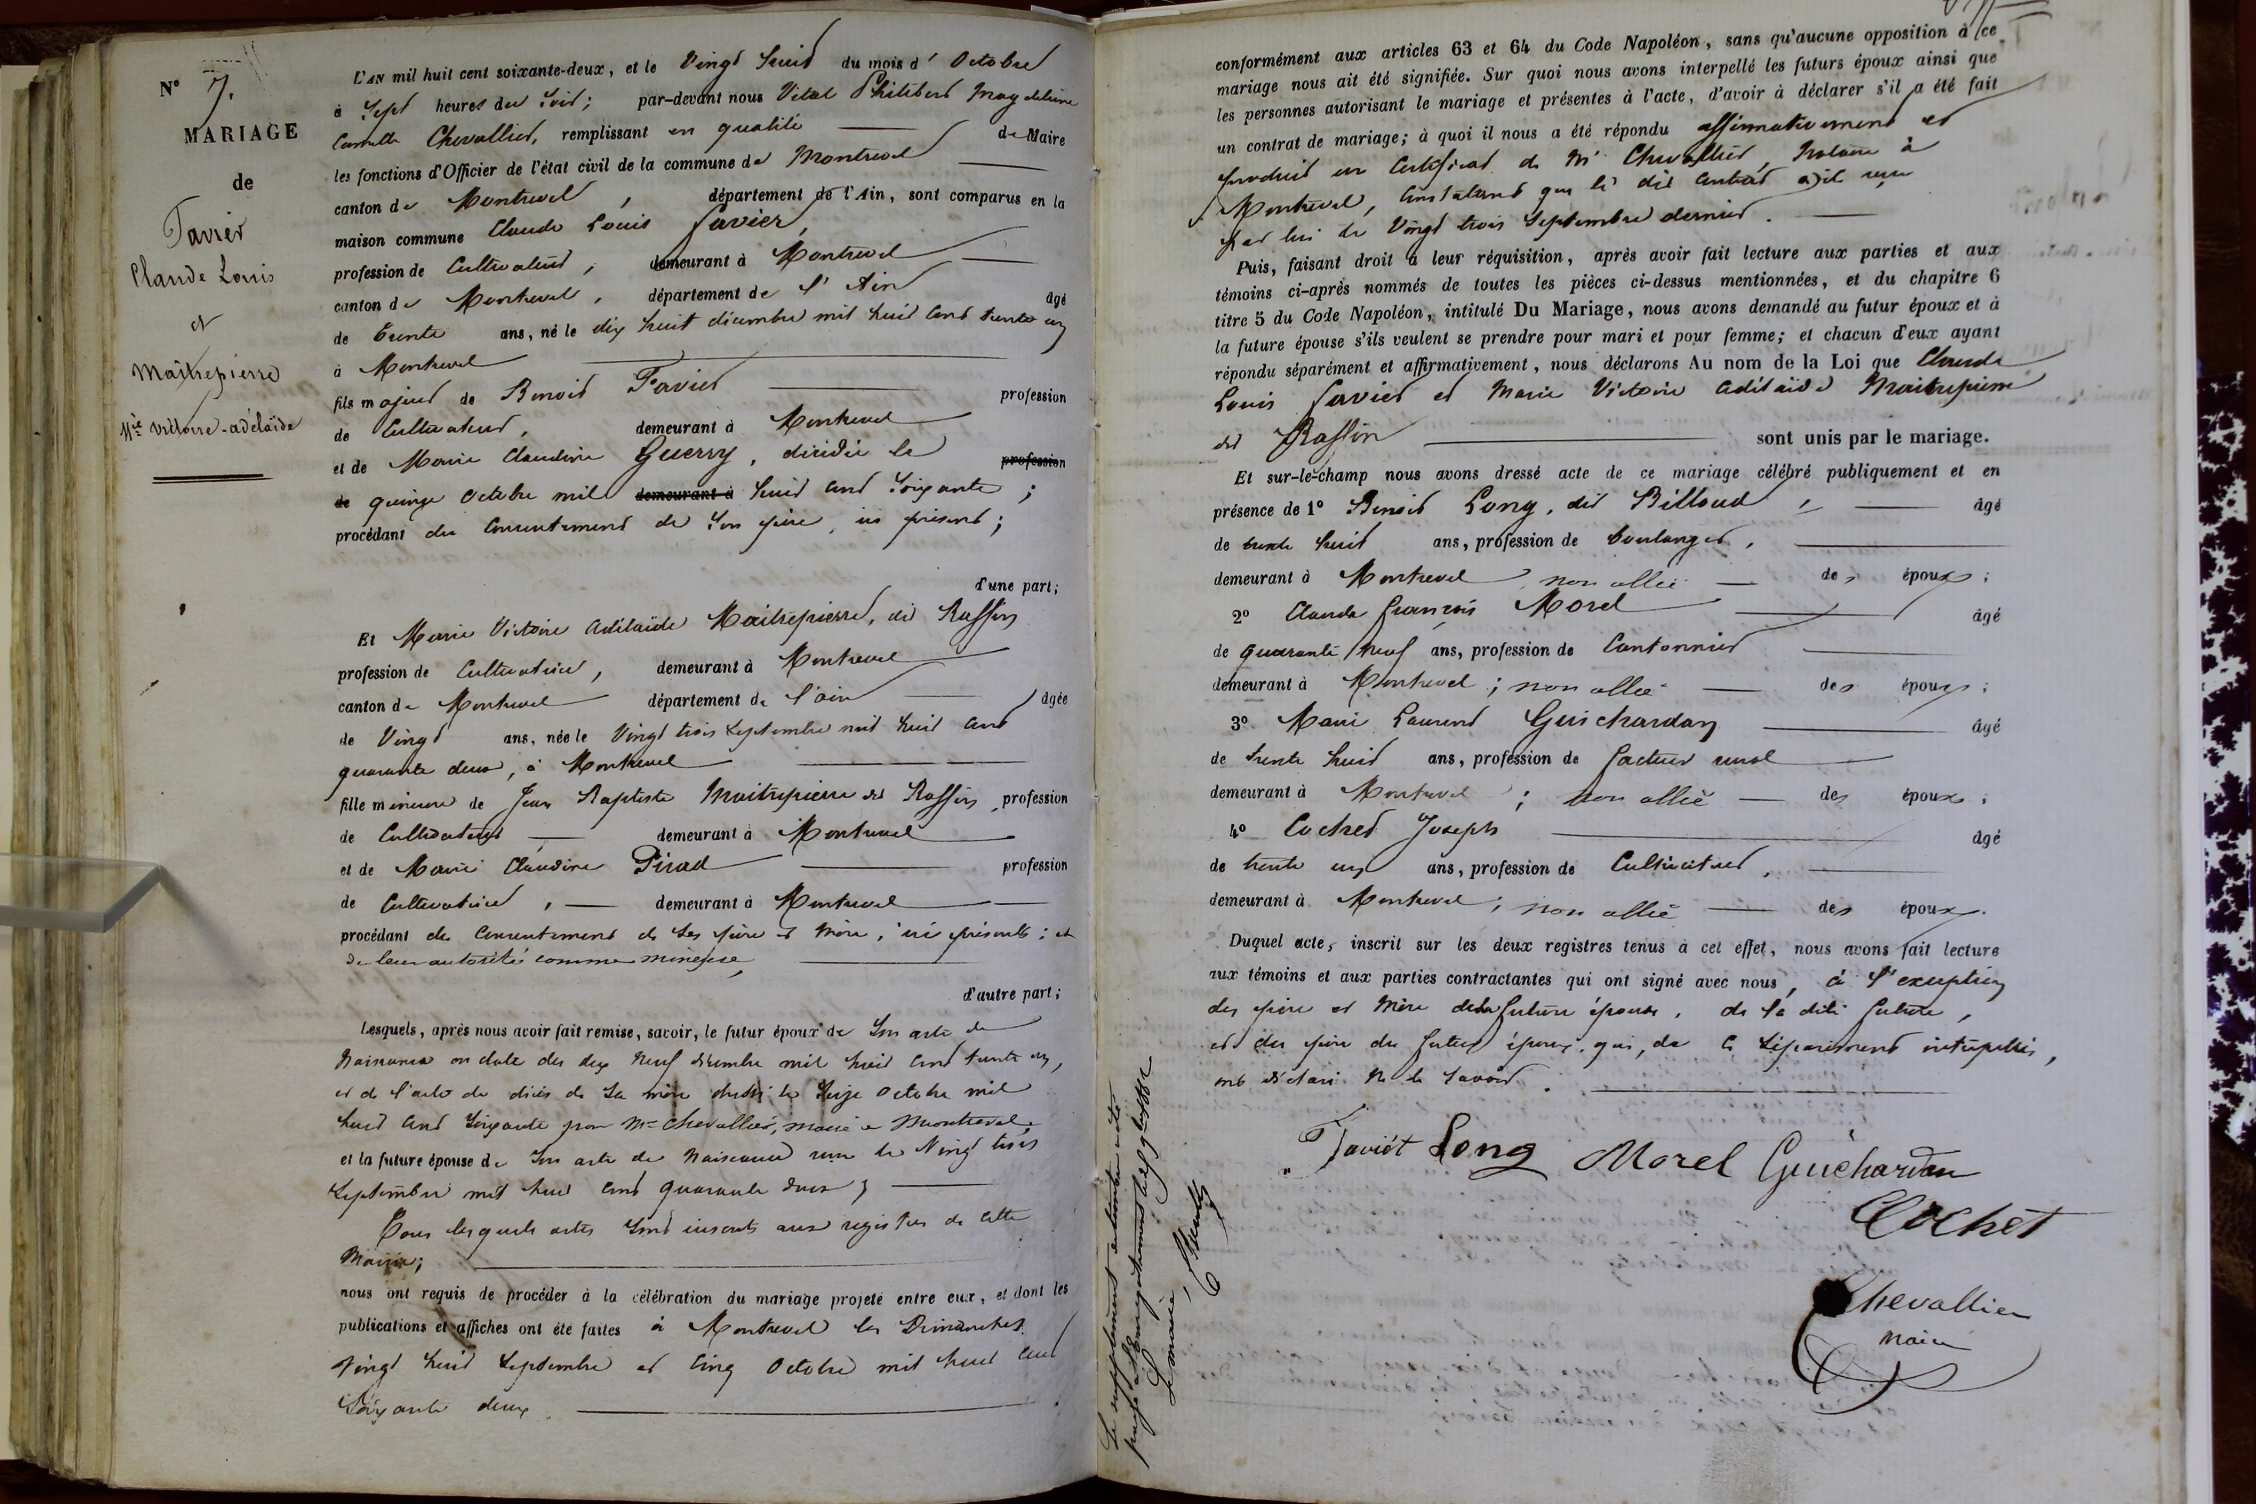 N° 7.
MARIAGE
de
Favier
Claude Louis
et
Maitrepierre
Mie Victoire-adélaïde
L'AN mil huit cent soixante-deux, et le Vingt huit du mois d' Octobre
à Sept heures du Soir; par-devant nous Vital Philibert Magdeleine
Camille Chevallier, remplissant en qualité de Maire
les fonctions d'Officier de l'état civil de la commune de Montrevel
canton de Montrevel, département de l'Ain, sont comparus en la
maison commune Claude Louis Favier,
profession de Cultivateur, demeurant à Montrevel
canton de Montrevel, département de l'Ain âgé
de Trente ans, né le dix huit décembre mil huit cent trente un
à Montrevel
fils majeur de Benoit Favier profession
de Cultivateur, demeurant à Montrevel
et de Marie Claudine Guerry, décédée le profession
de quinze octobre mil demeurant à huit cent Soixante;
procédant du Consentement de Son père, ici présent;
d'une part;
Et Marie Victoire Adélaïde Maitrepierre, dit Raffin
profession de Cultivatrice, demeurant à Montrevel
canton de Montrevel département de l'ain âgée
de Vingt ans, née le Vingt trois Septembre mil huit cent
quarante deux, à Montrevel
fille mineure de Jean Baptiste Maitrepierre dit Raffin, profession
de Cultivateur demeurant à Montrevel
et de Marie Claudine Pirad profession
de Cultivatrice, demeurant à Montrevel
procédant du Consentement de Ses père et Mère, ici présents; et
de leur autorité comme mineure,
d'autre part;
Lesquels, après nous avoir fait remise, savoir, le futur époux de Son acte de
Naissance en date du dix Neuf décembre mil huit cent trente un,
et de l'acte de décès de Sa mère dressé le Seize Octobre mil
huit cent Soixante par Mr Chevallier, maire à Montrevel
et la future épouse de Son acte de Naissance reçu le Vingt trois
Septembre mil huit cent quarante deux;
Tous lesquels actes Sont inscrits aux registres de cette
Mairie;
nous ont requis de procéder à la célébration du mariage projeté entre eux, et dont les
publications et affiches ont été faites à Montrevel les Dimanches
Vingt huit Septembre et Cinq Octobre mil huit cent
Soixante deux.
conformément aux articles 63 et 64 du Code Napoléon, sans qu'aucune opposition à ce
mariage nous ait été signifiée. Sur quoi nous avons interpellé les futurs époux ainsi que
les personnes autorisant le mariage et présentes à l'acte, d'avoir à déclarer s'il a été fait
un contrat de mariage; à quoi il nous a été répondu affirmativement et
produit un Certificat de Mr Chevallier, Notaire à
Montrevel, Constatant que le dit Contrat a été reçu
par lui le Vingt trois Septembre dernier.
Puis, faisant droit à leur réquisition, après avoir fait lecture aux parties et aux
témoins ci-après nommés de toutes les pièces ci-dessus mentionnées, et du chapitre 6
titre 5 du Code Napoléon, intitulé Du Mariage, nous avons demandé au futur époux et à
la future épouse s'ils veulent se prendre pour mari et pour femme; et chacun d'eux ayant
répondu séparément et affirmativement, nous déclarons Au nom de la Loi que Claude
Louis Favier et Marie Victoire Adélaïde Maitrepierre
dit Raffin sont unis par le mariage.
Et sur-le-champ nous avons dressé acte de ce mariage célébré publiquement et en
présence de 1° Benoit Long, dit Billoud, âgé
de trente huit ans, profession de boulanger,
demeurant à Montrevel non allié des époux;
2° Claude François Morel âgé
de quarante Neuf ans, profession de Cantonnier
demeurant à Montrevel; non allié des époux;
3° Marie Laurent Guichardan âgé
de trente huit ans, profession de facteur rural
demeurant à Montrevel; non allié des époux;
4° Cochet Joseph âgé
de trente un ans, profession de Cultivateur,
demeurant à Montrevel; non allié des époux.
Duquel acte, inscrit sur les deux registres tenus à cet effet, nous avons fait lecture
aux témoins et aux parties contractantes qui ont signé avec nous, à l'exception
des père et Mère de la future épouse, de la dite future,
et du père du futur époux, qui, de ce Séparément interpellés,
ont déclaré Ne le Savoir.
Faviét Long Morel Guichardan
Cochet
Chevallier
Maire
Le maire,